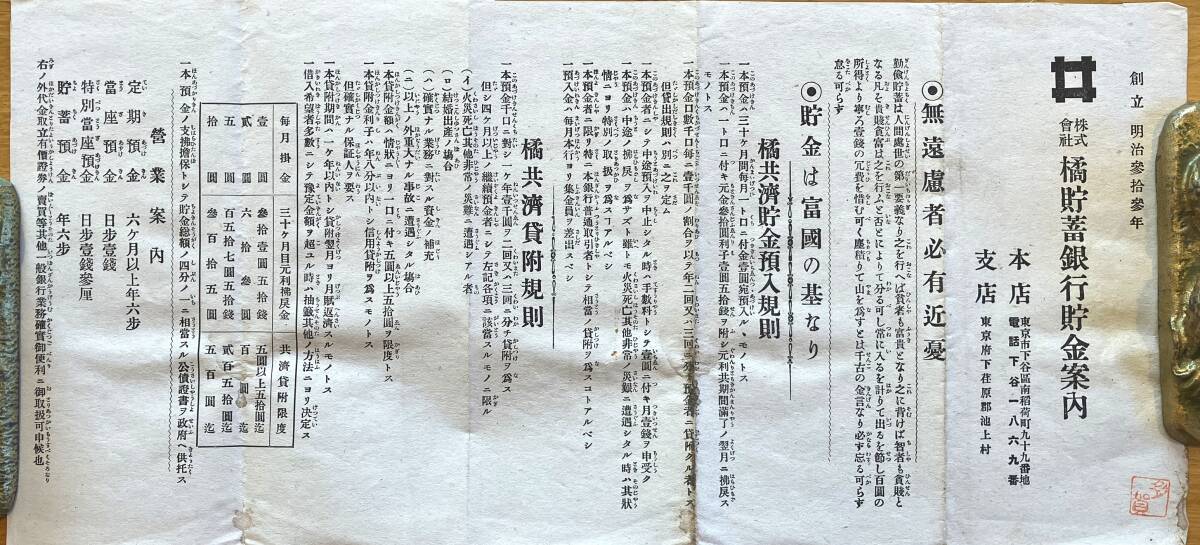 創立 明治參拾參年
株式會社 橘貯蓄銀行貯金案內
本店 東京市下谷區南稻荷町九十九番地
電話下谷一八六九番
支店 東京府下荏原郡池上村
◉無遠慮者必有近憂
勤儉貯蓄は人間處世の第一要義なり之を行へば貧者も富貴となり之に背けば智者も貧賤と
なる凡そ貴賤貧富は之を行ふと否とによりて分る可し常に入るを計りて出るを節し百圓の
所得より寧ろ壹錢の冗費を惜む可く塵積りて山を爲すとは千古の金言なり必ず忘る可らず
怠る可らず
◉貯金は富國の基なり
橘共濟貯金預入規則
一本預金ハ三十ケ月間每月一ト口ニ付金壹圓宛預入ルヽモノトス
一本預金ハ一ト口ニ付キ元金參拾圓利子壹圓五拾錢ヲ附シ元利共期間滿了ノ翌月ニ拂戾ス
モノトス
一本預金口數千口每ニ壹千圓ノ割合ヲ以テ年二回又ハ三回ニ預金者ニ貸附クル者トス
但貸出規則ハ別ニ之ヲ定ム
一本預金者ニシテ中途預入ヲ中止シタル時ハ手數料トシテ壹圓ニ付キ月壹錢ヲ申受ク
一本預金ハ中途ノ拂戾ヲ爲サズト雖トモ火災死亡其他非常ノ災難ニ遭遇シタル時ハ其狀
情ニヨリ特別ノ取扱ヲ爲スコアルベシ
一本預金者ニ限リ特ニ本銀行普通取引者トシテ相當ノ貸附ヲ爲スコトアルベシ
一預入金ハ每月本行ヨリ集金員ヲ差出スベシ
橘共濟貸附規則
一本預金千口ニ對シ一ケ年壹千圓ヲ二回又ハ三回ニ分チ貸附ヲ爲ス
但シ四ケ月以上ノ繼續預金者ニシテ左ノ各項ニ該當スルモノニ限ル
(イ)火災死亡其他非常ノ災難ニ遭遇シアル者
(ロ)結婚出產ノ塲合
(ハ)確實ナル業務ニ對スル資金ノ補充
(ニ)以上ノ外重大ナル事故ニ遭遇シタル塲合
一本貸附金額ハ情狀ニヨリ一ト口ニ付キ五圓以上五拾圓ヲ限度トス
一本貸附金利子ハ年八分以內トシ信用貸附ヲ爲スモノトス
但確實ナル保証ヲ要ス
一本貸附期間ハ一ケ年以內トシ貸附翌月ヨリ月賦返濟スルモノトス
一借入希望者多數ニシテ豫定金額ヲ超ユル時ハ抽籤其他ノ方法ニヨリ決定ス
每月掛金 三十ケ月目元利拂戾金 共濟貸附限度
壹圓 參拾壹圓五拾錢 五圓以上五拾圓迄
貳圓 六拾參圓 百圓迄
五圓 百五拾七圓五拾錢 貳百五拾圓迄
拾圓 參百拾五圓 五百圓迄
一本預金ノ支拂擔保トシテ貯金總額ノ四分ノ一ニ相當スル公債證書ヲ政府ヘ供托ス
營業案內
定期預金 六ケ月以上年六步
當座預金 日步壹錢
特別當座預金 日步壹錢參厘
貯蓄預金 年六步
右ノ外代金取立有價證券ノ賣買等其他一般銀行業務確實御便利ニ御取扱可申候也